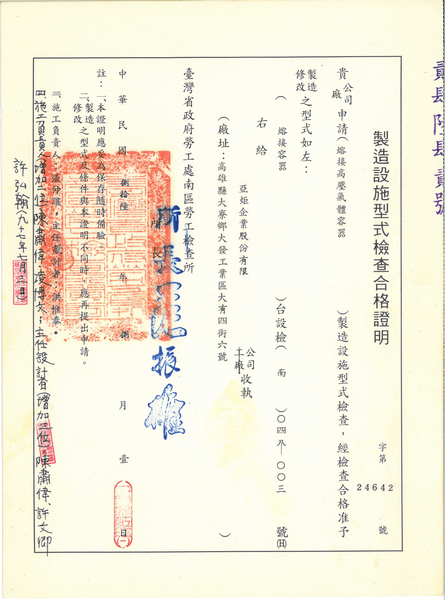 貳肆陸肆貳號
製造設施型式檢查合格證明
字第 24642 號
貴公司廠申請(熔接高壓氣體容器)製造設施型式檢查,經檢查合格准予
製造修改之型式如左:
(熔接容器)台設檢(南)〇四只—〇〇三號(H)
右給
亞炬企業股份有限公司工廠收執
(廠址:高雄縣大寮鄉大發工業區大有四街六號)
臺灣省政府勞工處南區勞工檢查所
所長
振雄
中華民國捌拾陸年 月壹日
註:一、本證明應妥為保存隨時備驗
二、製造修改之型式及條件與本證明不同時,應再提出申請。
三、施工負責人:張分讓,主任設計者:洪推泰。
四、施工負責人增加二位:陳肅偉、凌博文;主任設計者增加二位:陳肅偉、許文卿
許弘翰 九十七年七月三日